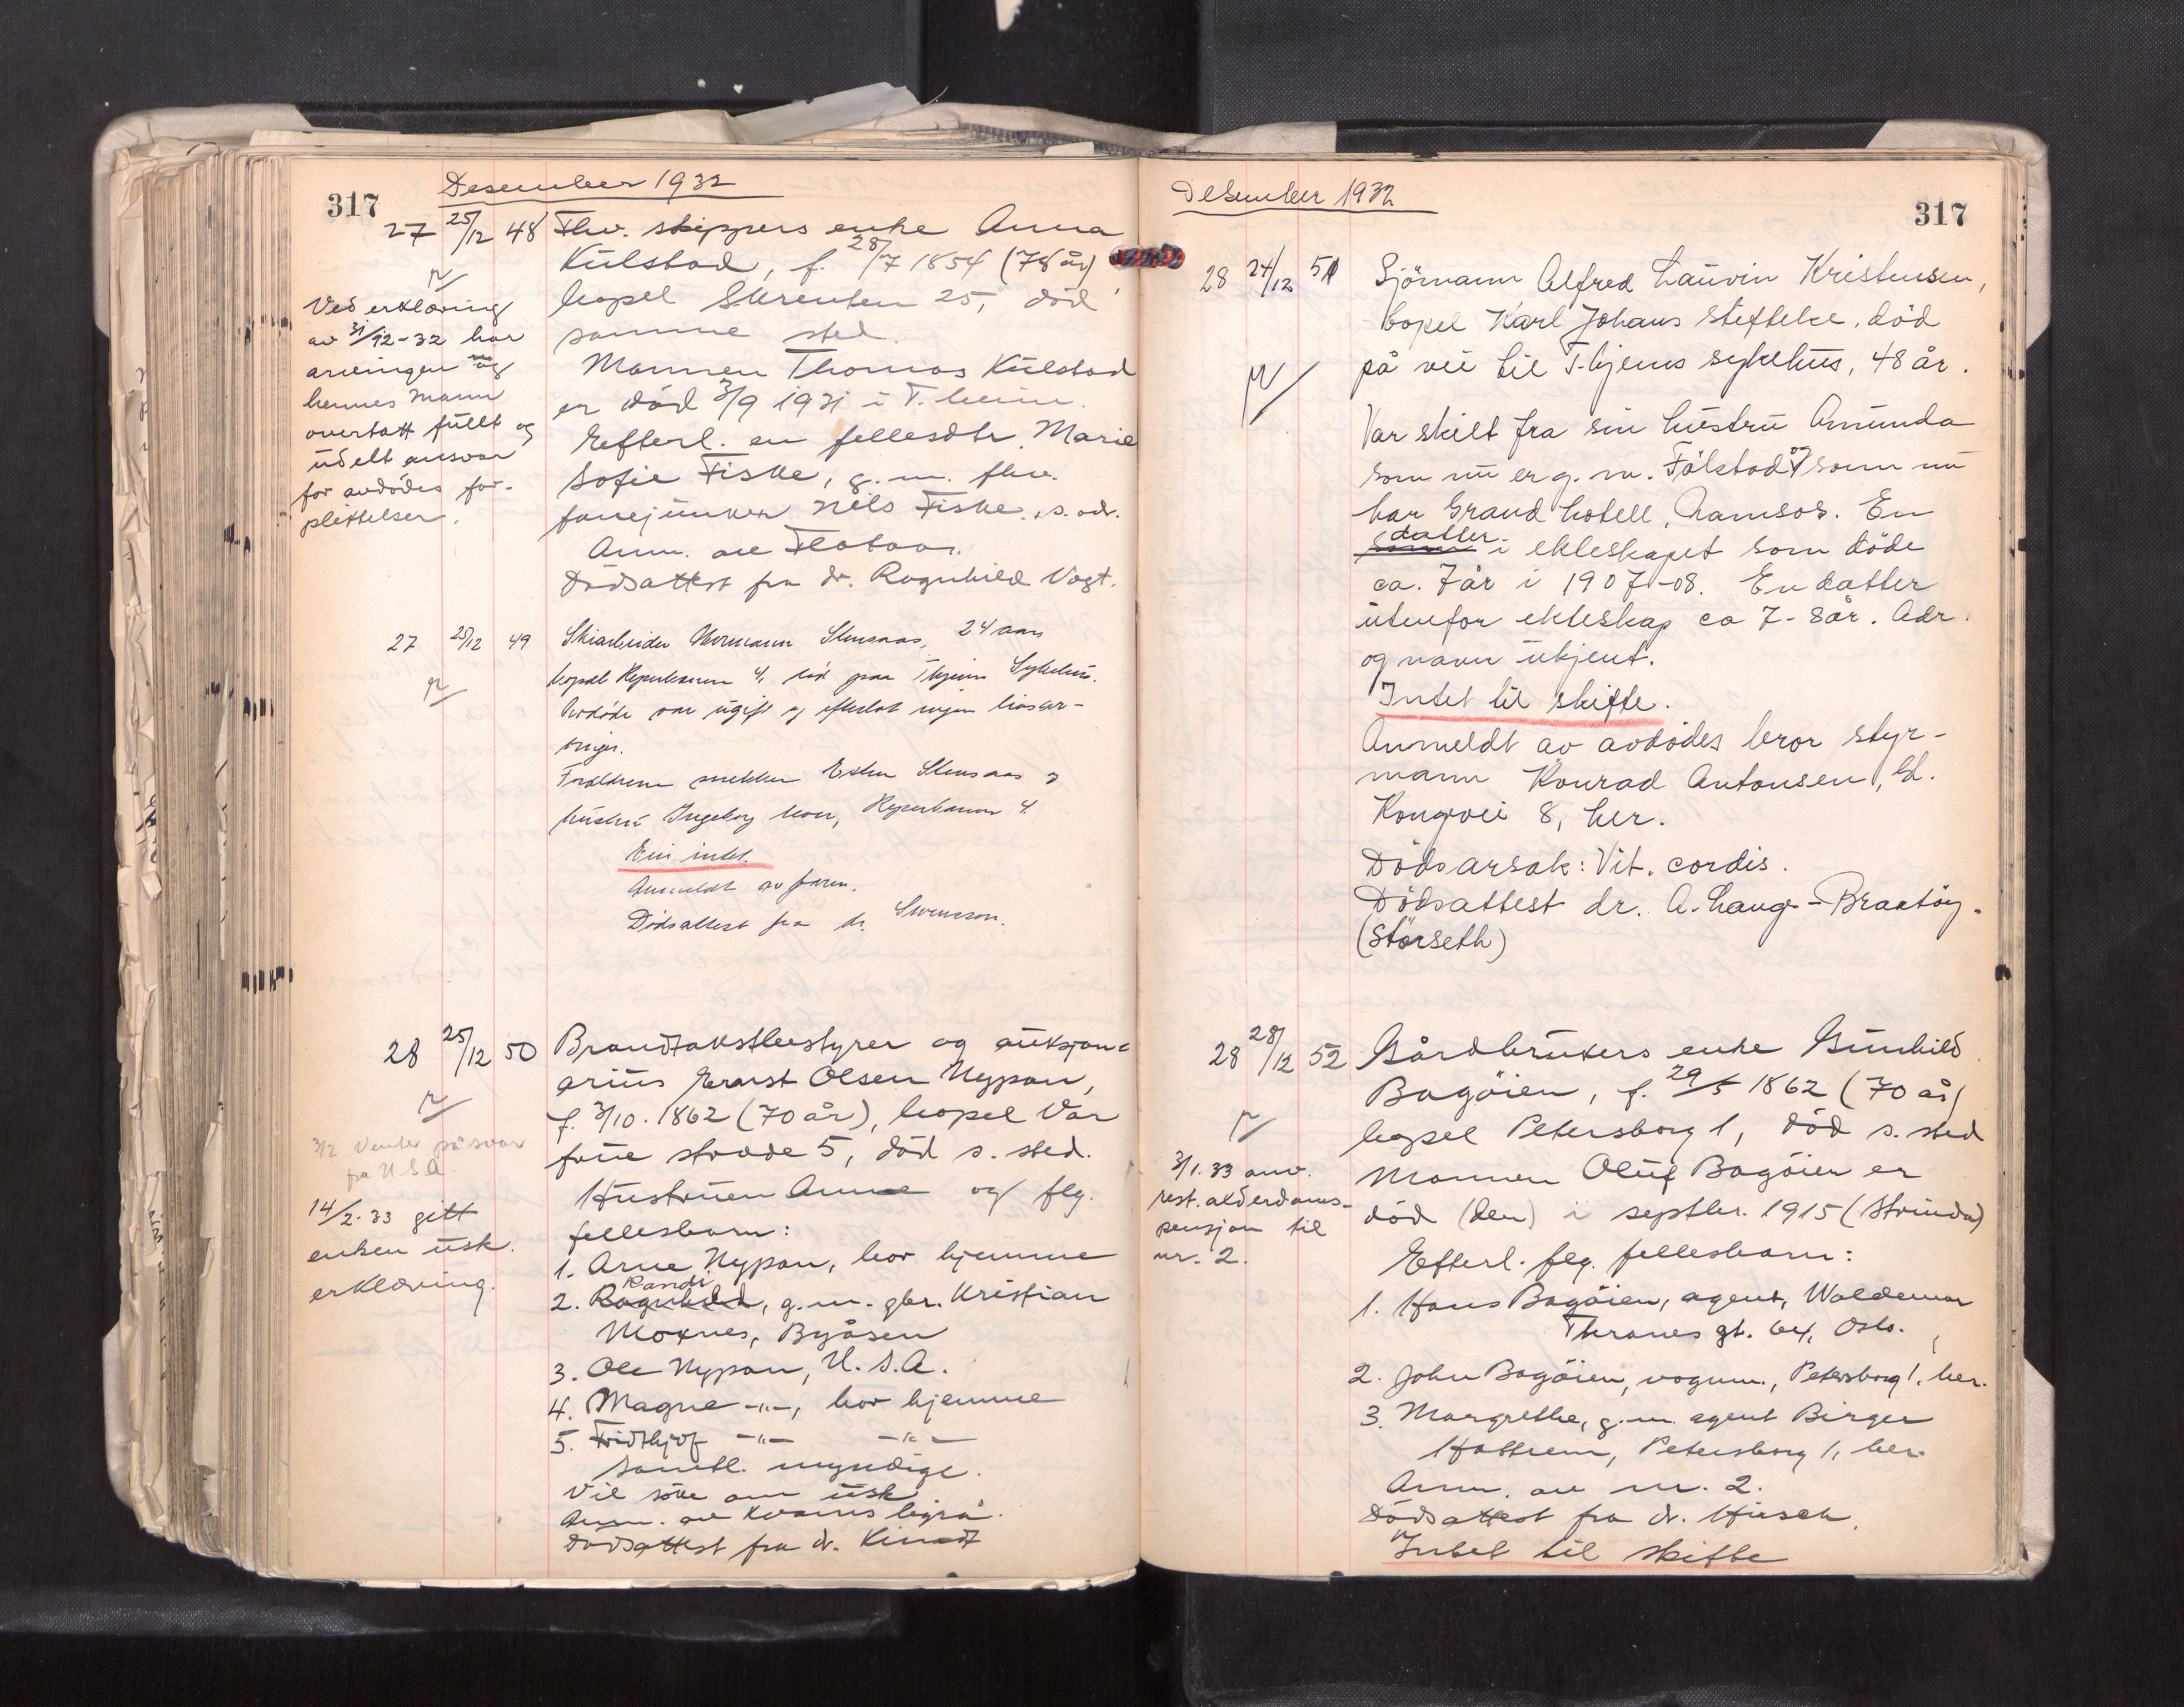 317
Desember 1932
27 25/12 48 Fhv. skippers enke Anna
Kulstad, f. 28/7 1854 (78 år),
bopel Skrenten 25, död
samme sted.
Mannen Thomas Kulstad
er död 3/9 1931 i T.heim.
Efterl. en fellesdtr. Marie
Sofie Fiske, g.m. fhv.
fanejunker Nils Fiske, s. adr.
Anm. av
Dödsattest fra dr. Ragnhild Vogt.
Ved erklæring
av 31/12-32 har
arvingen og
hennes mann
overtatt fullt og
udelt ansvar
for avdödes for-
pliktelser.
27 25/12 49 Skiarbeider Hermann Stensaas, 24 aar,
bopæl Reperbanen 4, död paa Thjems Sykehus.
Avdöde var ugift og efterlot ingen livsar-
vinger.
Foreldrene snekker Esten Stensaas og
hustru Ingeborg bor, Reperbanen 4.
Eiei intet.
Anmeldt av faren.
Dödsattest fra dr. Swensson.
28 25/12 50 Brandtakstbestyrer og auksjon-
arius Ernst Olsen Nypan,
f. 3/10. 1862 (70 år), bopel Vår
frue stræde 5, död s. sted.
Hustruen Anne og flg.
fellesbarn:
1. Arne Nypan, bor hjemme
Randi
2. Ragnhild, g.m. gbr. Kristian
Moxnes, Byåsen
3. Ole Nypan, U.S.A.
4. Magne -"-, bor hjemme
5. Fridthjof -"- -"-
Samtl. myndige.
Vil söke om usk.
Anm. av Kvams byrå.
Dödsattest fra dr. Kindt
3/2 Venter på svar
fra U.S.A.
14/2-33 gitt
enken usk.
erklæring.
Desember 1932
317
28 24/12 51 Sjömann Alfred Lauvin Kristensen,
bopel Karl Johans stiftelse, död
på vei til T-hjems sykehus, 48 år.
Var skilt fra sin hustru Amunda
som nu er g.m. Fölstad og som nu
har Grand hotell, Namsos. En
datter i ekteskapet som döde
ca. 7 år i 1907-08. En datter
utenfor ekteskap ca 7-8 år. Adr.
og navn ukjent.
Intet til skifte.
Anmeldt av avdödes bror styr-
mann Konrad Antonsen, Gl.
Kongvei 8, her.
Dödsarsak: Vit. cordis.
Dödsattest dr. A. Haug-Brattöy.
(Störseth)
28 28/12 52 Gårdbrukers enke Gunhild
Bagöien, f. 29/5 1862 (70 år)
bopel Petersborg 1, död s. sted
Mannen Oluf Bagöien er
död (den) i septbr. 1915 (Strinda)
Efterl. flg. fellesbarn:
1. Hans Bagöien, agent, Waldemar
Thranes gt. 64, Oslo.
2. John Bagöien, vognm., Petersborg 1, her.
3. Margrethe, g.m. agent Birger
Hattrem, Petersborg 1, her.
Anm. av nr. 2.
Dödsattest fra dr. Hirsch.
Intet til skifte
3/1.33 anv.
rest. alderdoms-
pensjon til
nr. 2.